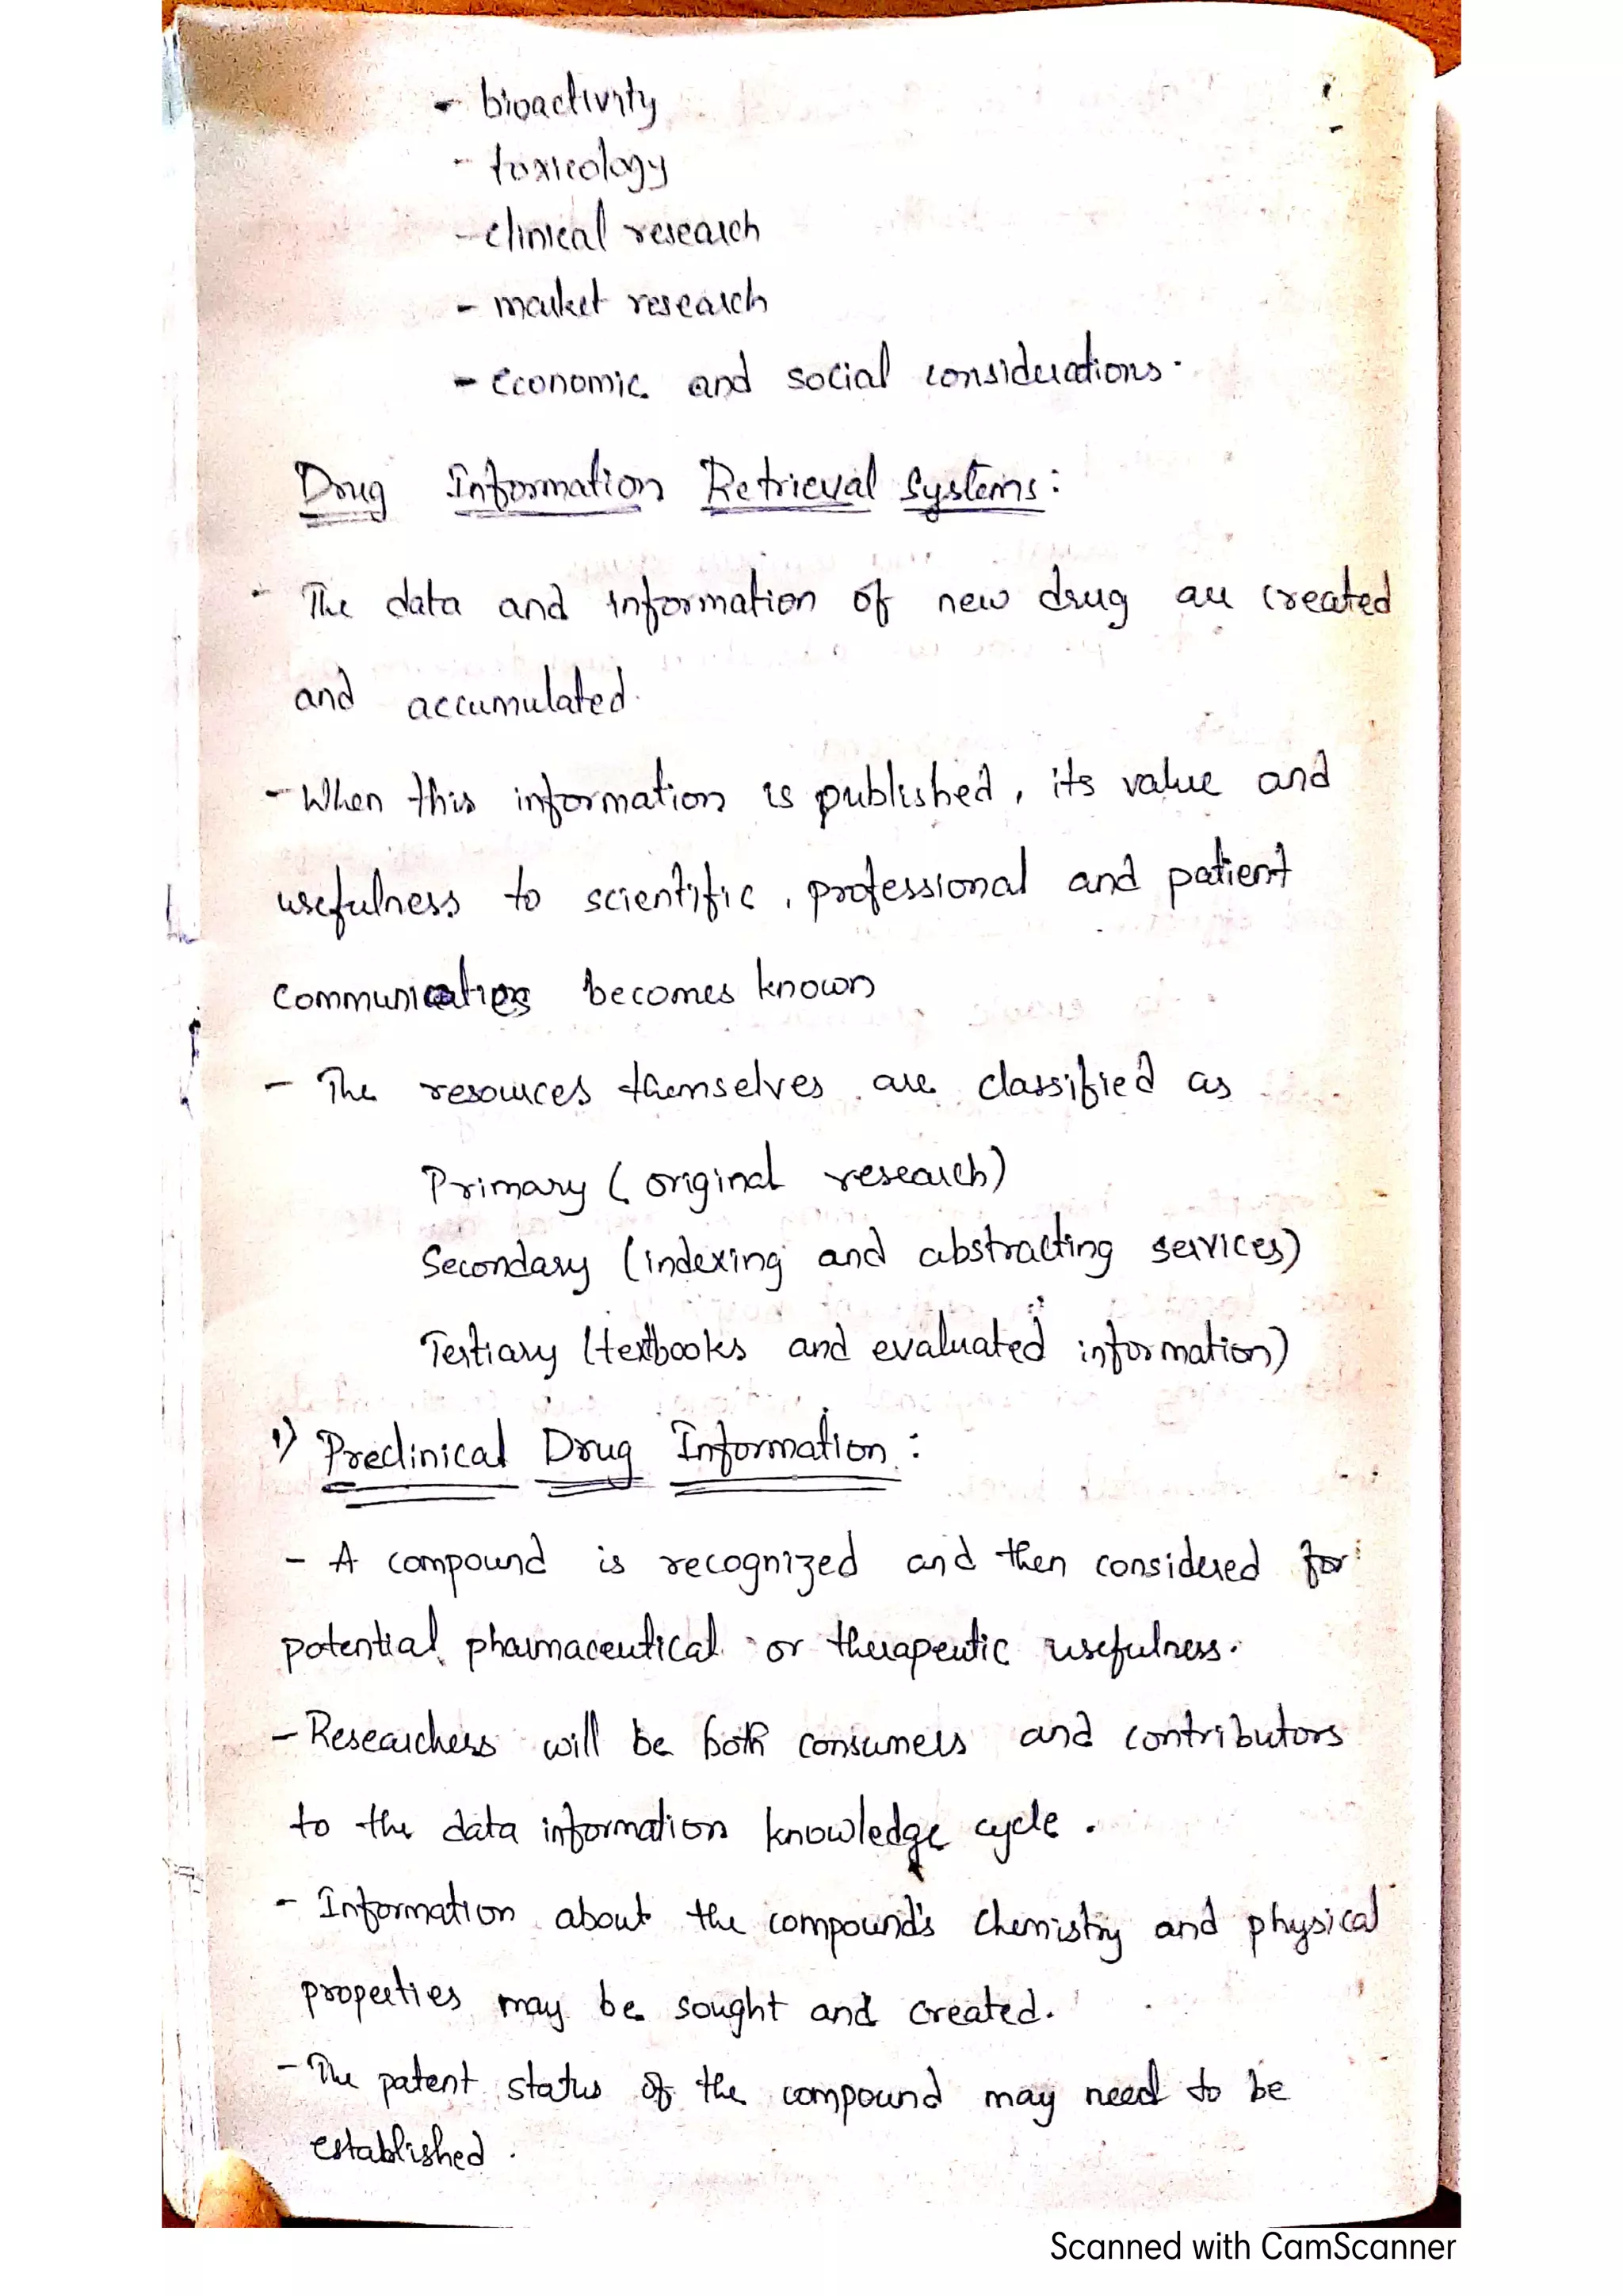 - bioactivity
- toxicology
- clinical research
- market research
- economic and social considerations.
Drug Information Retrieval Systems :
- The data and information of new drug are created
and accumulated.
- When this information is published, its value and
usefulness to scientific, professional and patient
communities becomes known
- The resources themselves are classified as
Primary ( original research)
Secondary (indexing and abstracting services)
Tertiary (textbooks and evaluated information)
1) Preclinical Drug Information :
- A compound is recognized and then considered for
potential pharmaceutical or therapeutic usefulness.
- Researchers will be both consumers and contributors
to the data information knowledge cycle .
- Information about the compound's chemistry and physical
properties may be sought and created.
- The patent status of the compound may need to be
established .
Scanned with CamScanner